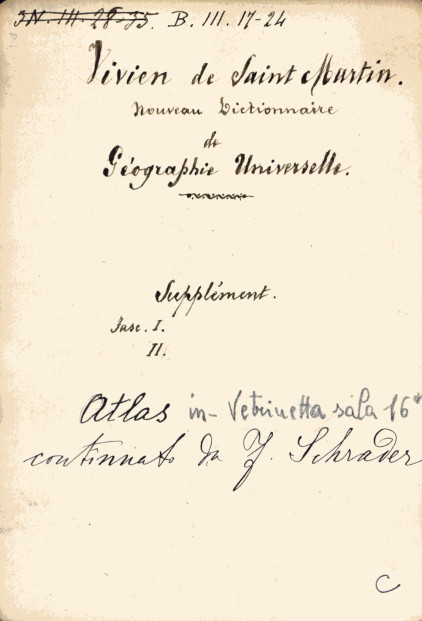 IN. III. 28-35. B. III. 17-24
Vivien de Saint Martin.
Nouveau Dictionnaire
de
Géographie Universelle.
Supplément.
Fasc. I.
II.
Atlas in- Vetrinetta sala 16ª
continuato da F. Schrader
C